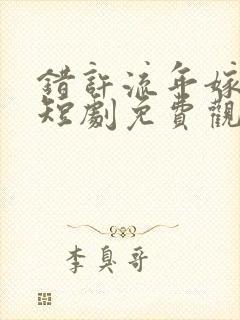 錯許流年嫁
短劇免費觀
李臭哥